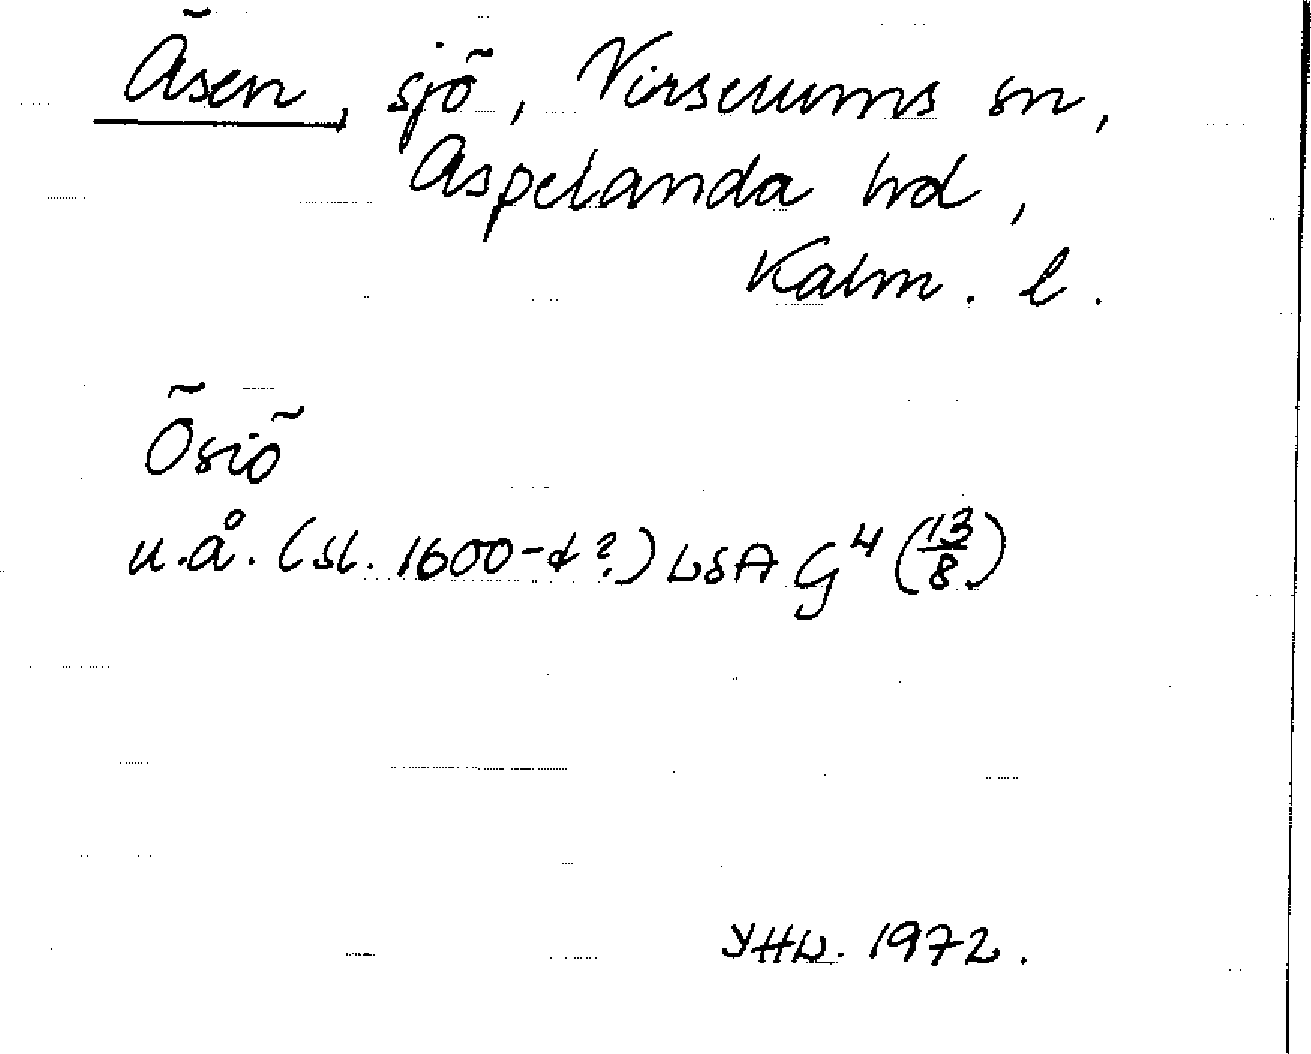 Äsen, sjö, Virserums sn,
Aspelands hd,
Kalm. l.
Ösiö
u.å. (sl. 1600-t?) LSA G⁴ (13/8)
YHL. 1972.